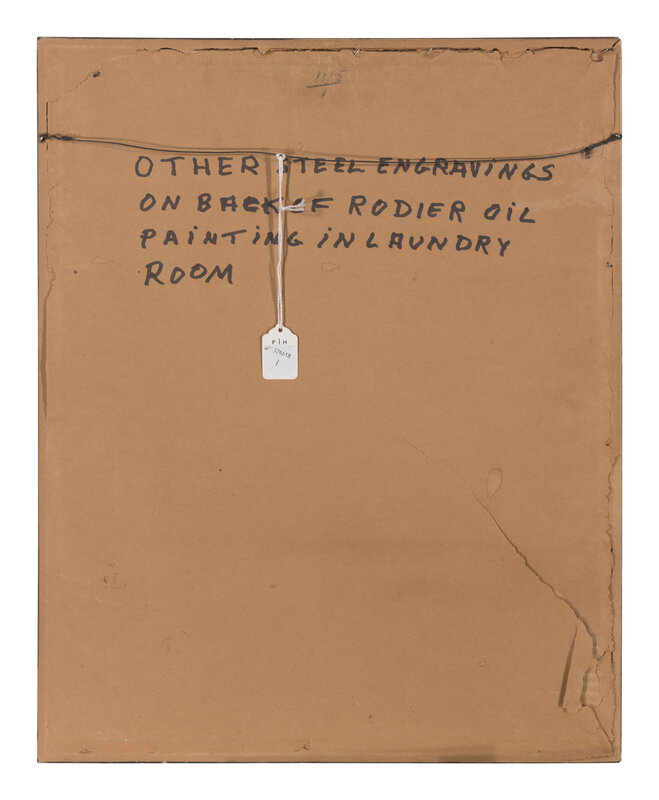 115
OTHER STEEL ENGRAVINGS
ON BACK OF RODIER OIL
PAINTING IN LAUNDRY
ROOM
F|H
376618
1